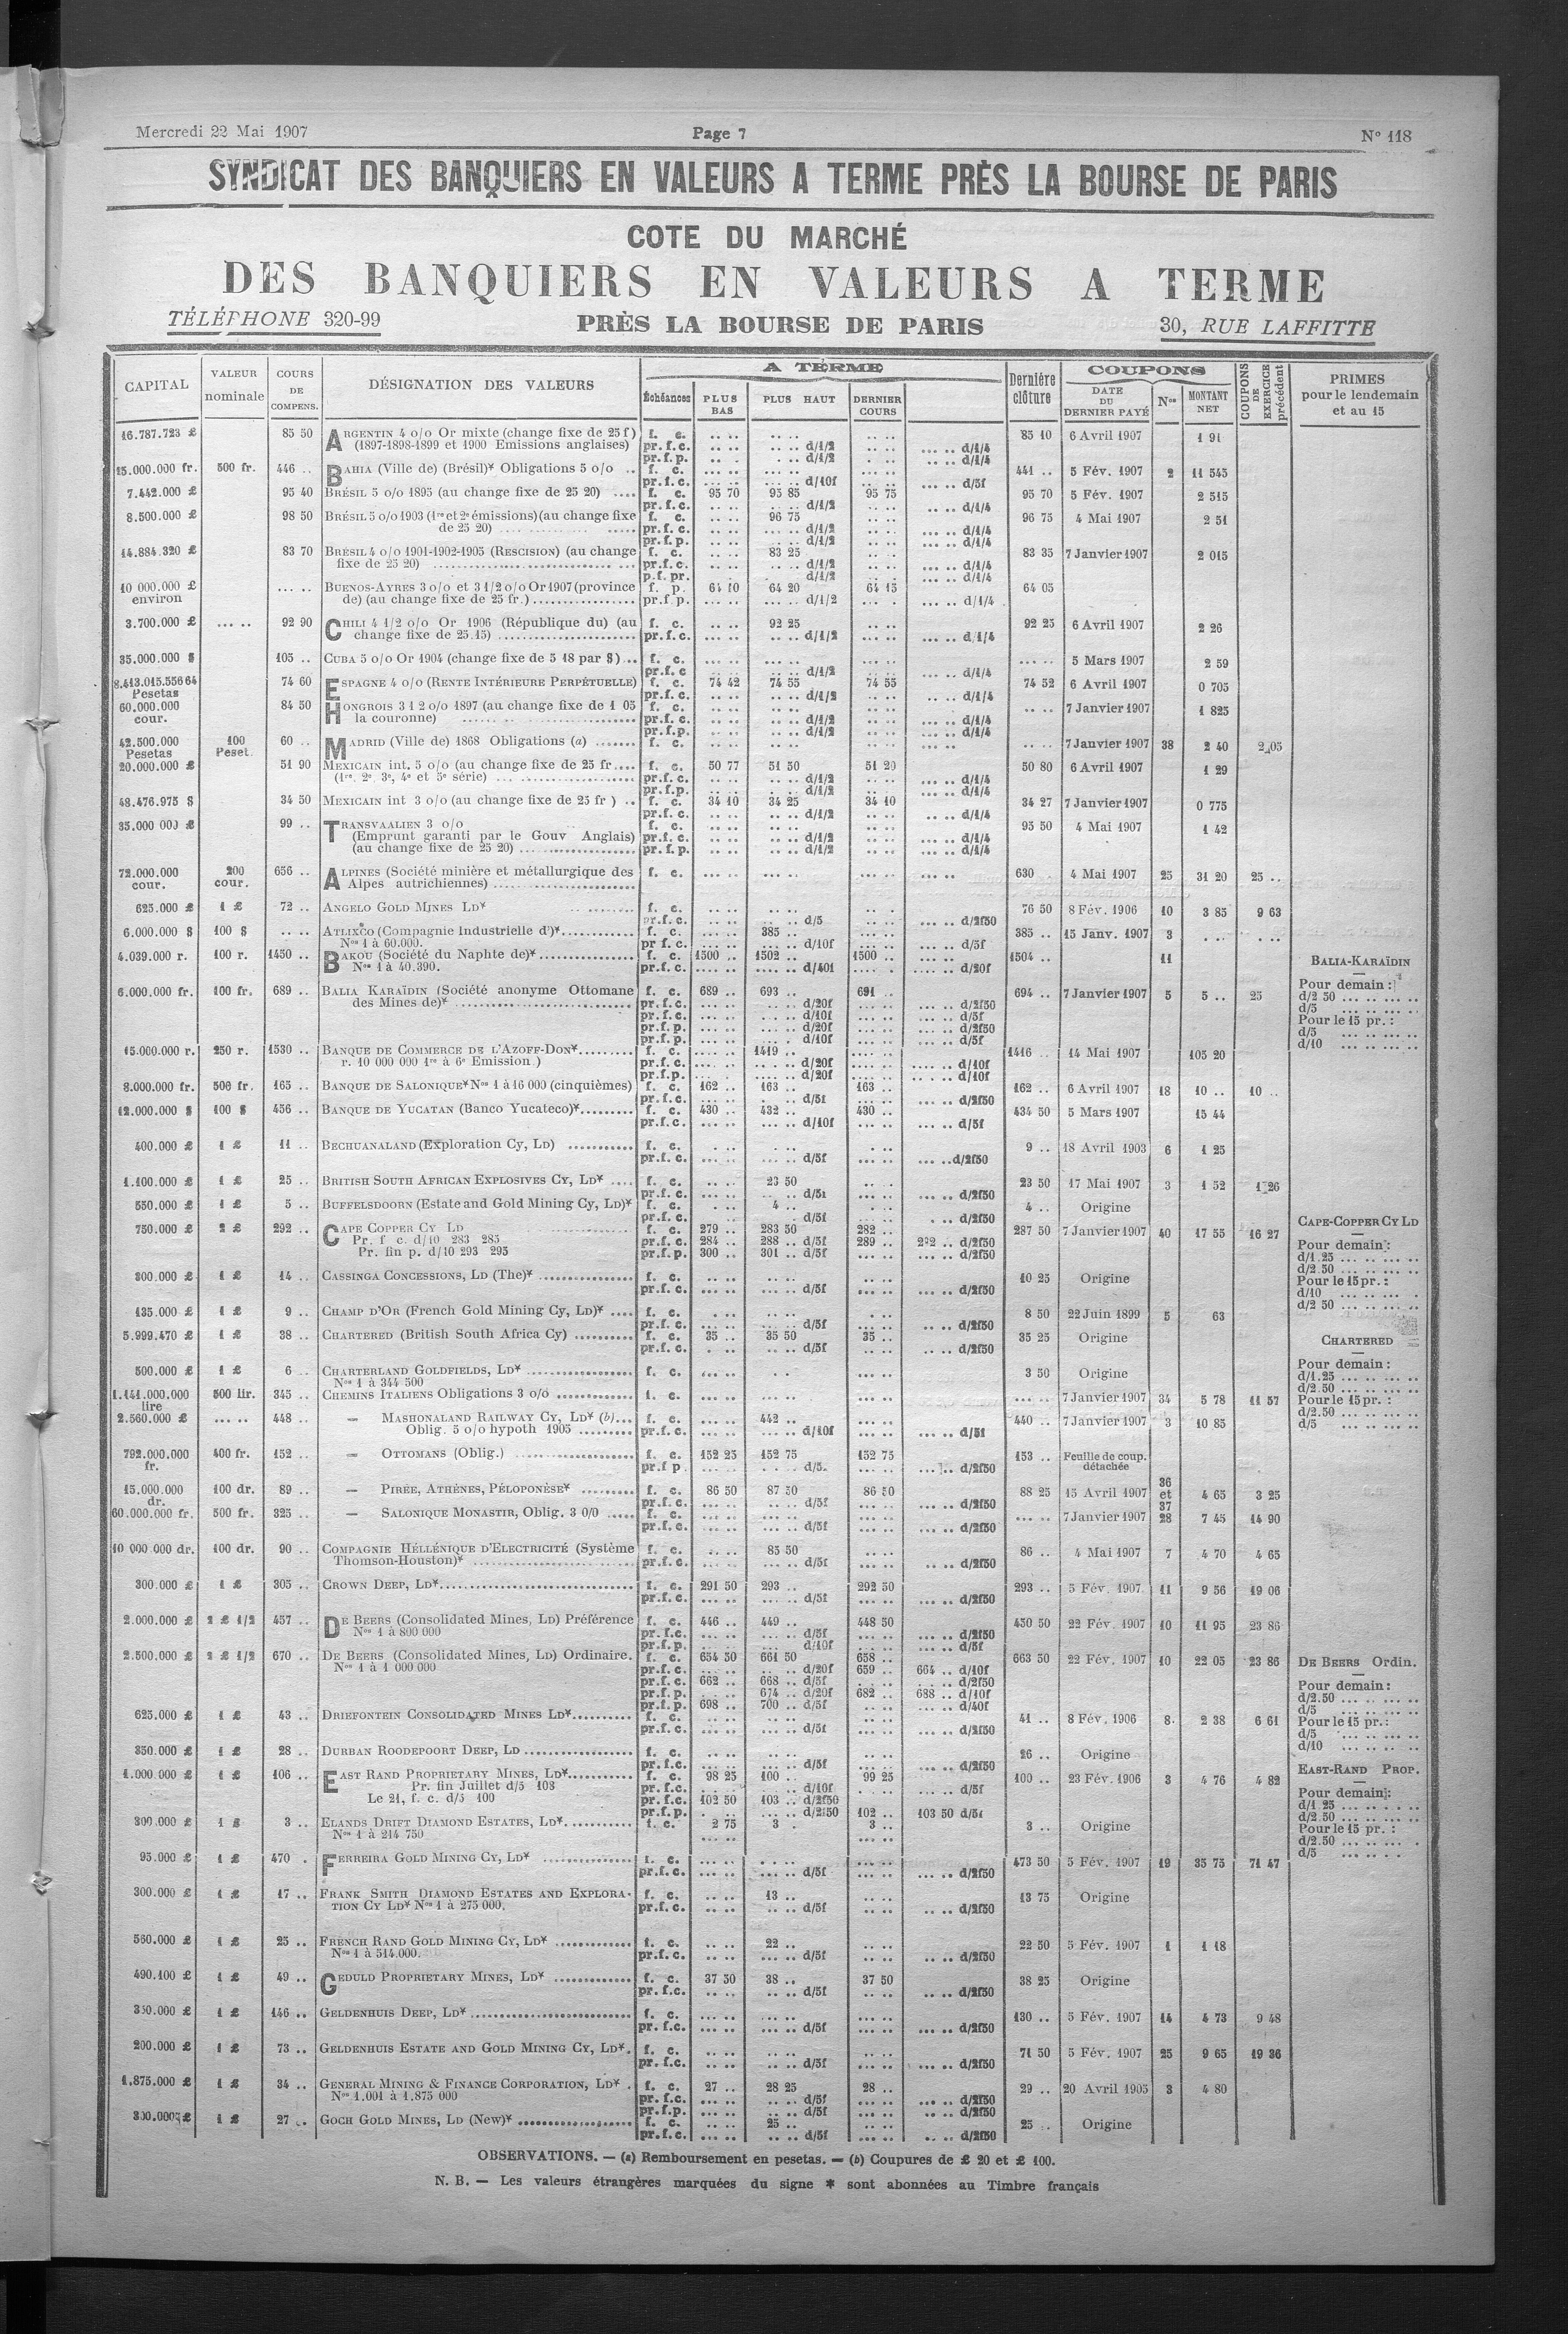 Mercredi 22 Mai 1907 Page 7 N° 118
SYNDICAT DES BANQUIERS EN VALEURS A TERME PRÈS LA BOURSE DE PARIS
COTE DU MARCHÉ
DES BANQUIERS EN VALEURS A TERME
TÉLÉPHONE 320-99 PRÈS LA BOURSE DE PARIS 30, RUE LAFFITTE
CAPITAL VALEUR nominale COURS DE COMPENS. DÉSIGNATION DES VALEURS A TERME Échéances PLUS BAS PLUS HAUT DERNIER COURS Dernière clôture COUPONS DATE DU DERNIER PAYÉ Nos MONTANT NET COUPONS DE EXERCICE précédent PRIMES pour le lendemain et au 15
16.787.723 £ 85 50 ARGENTIN 4 o/o Or mixte (change fixe de 25 f) f. c. .. .. .. .. .. .. 85 10 6 Avril 1907 1 91
(1897-1898-1899 et 1900 Emissions anglaises) pr.f.c. .. .. .. .. d/1/2 .. .. ... .. d/1/4
pr.f.p. .. .. .. .. d/1/2 .. .. .. .. d/1/4
15.000.000 fr. 500 fr. 446 .. BAHIA (Ville de) (Brésil)* Obligations 5 o/o .. f. c. ... .. ... .. ... .. 441 .. 5 Fév. 1907 2 11 545
pr.f.c. ... .. ... .. d/10f ... .. ... .. d/5f
7.442.000 £ 95 40 BRÉSIL 5 o/o 1895 (au change fixe de 25 20) .... f. c. 95 70 95 85 95 75 95 70 5 Fév. 1907 2 515
pr.f.c. .. .. .. .. d/1/2 .. .. .. .. d/1/4
8.500.000 £ 98 50 BRÉSIL 5 o/o 1903 (1re et 2e émissions) (au change fixe f. c. .. .. 96 75 .. .. 96 75 4 Mai 1907 2 51
de 25 20) .... pr.f.c. .. .. .. .. d/1/2 .. .. ... .. d/1/4
pr.f.p. .. .. .. .. d/1/2 .. .. ... .. d/1/4
14.884.320 £ 83 70 BRÉSIL 4 o/o 1901-1902-1905 (RESCISION) (au change f. c. .. .. 83 25 .. .. 83 35 7 Janvier 1907 2 015
fixe de 25 20) .... pr.f.c. .. .. .. .. d/1/2 .. .. ... .. d/1/4
p.f. pr. .. . d/1/2 .. . ... .. d/1/4
10 000.000 £ environ ... .. BUENOS-AYRES 3 o/o et 3 1/2 o/o Or 1907 (province f. p. 64 10 64 20 64 15 64 05
de) (au change fixe de 25 fr.) .... pr.f p. .. .. .. .. d/1/2 ... . ... .. d/1/4
3.700.000 £ ... .. 92 90 CHILI 4 1/2 o/o Or 1906 (République du) (au f. c. .. .. 92 25 .. .. 92 25 6 Avril 1907 2 26
change fixe de 25.15) .... pr.f.c. ... .. .. .. d/1/2 ... .. ... .. d/1/4
35.000.000 $ 105 .. CUBA 5 o/o Or 1904 (change fixe de 5 18 par $) .. f. c. ... .. ... .. ... .. ... .. 5 Mars 1907 2 59
pr.f.c ... .. ... .. d/1/2 ... .. ... .. d/1/4
8.413.015.556 64 Pesetas 74 60 ESPAGNE 4 o/o (RENTE INTÉRIEURE PERPÉTUELLE) f. c. 74 42 74 55 74 55 74 52 6 Avril 1907 0 705
pr.f.c. .. .. .. .. d/1/2 .. .. .. .. d/1/4
60.000.000 cour. 84 50 HONGROIS 3 1 2 o/o 1897 (au change fixe de 1 05 f. c. .. .. .. .. .. .. .. .. 7 Janvier 1907 1 825
la couronne) .... pr.f.c. .. .. .. .. d/1/2 .. .. ... .. d/1/4
pr.f.p. .. .. .. .. d/1/2 .. .. ... .. d/1/4
42.500.000 Pesetas 100 Peset. 60 .. MADRID (Ville de) 1868 Obligations (a) .... f. c. .. .. .. .. .. .. ... .. .. .. 7 Janvier 1907 38 2 40 2 05
20.000.000 £ 51 90 MEXICAIN int. 5 o/o (au change fixe de 25 fr .... f. c. 50 77 51 50 51 20 50 80 6 Avril 1907 1 29
(1re, 2e, 3e, 4e et 5e série) .... pr.f.c. .. .. .. .. d/1/2 .. .. ... .. d/1/4
pr.f.p. .. .. .. .. d/1/2 .. .. ... .. d/1/4
48.476.975 $ 34 50 MEXICAIN int 3 o/o (au change fixe de 25 fr ) .. f. c. 34 10 34 25 34 10 34 27 7 Janvier 1907 0 775
pr.f.c. .. .. .. .. d/1/2 .. .. .. .. d/1/4
35.000 000 £ 99 .. TRANSVAALIEN 3 o/o f. c. .. .. .. .. .. .. 95 50 4 Mai 1907 1 42
(Emprunt garanti par le Gouv Anglais) pr.f.c. .. .. .. .. d/1/2 .. .. ... .. d/1/4
(au change fixe de 25 20) .... pr.f.p. .. .. .. .. d/1/2 .. .. ... .. d/1/4
72.000.000 cour. 200 cour. 656 .. ALPINES (Société minière et métallurgique des f. c. ... .. ... .. ... .. ... .. 630 . 4 Mai 1907 25 31 20 25 ..
Alpes autrichiennes) ....
625.000 £ 1 £ 72 .. ANGELO GOLD MINES LD* .... f. c. .. .. .. .. .. . 76 50 8 Fév. 1906 10 3 85 9 63
pr.f.c. .. .. .. .. d/5 .. .. ... .. d/2f50
6.000.000 $ 100 $ .. .. ATLIXCO (Compagnie Industrielle d')* .... f. c. ... .. 385 .. ... .. 385 .. 15 Janv. 1907 3 . .. . ..
Nos 1 à 60.000. pr f.c. ... .. ... .. d/10f ... .. ... .. d/5f
4.039.000 r. 100 r. 1450 .. BAKOU (Société du Naphte de)* .... f. c. 1500 .. 1502 .. 1500 .. 1504 .. 11 BALIA-KARAÏDIN
Nos 1 à 40.390. pr.f.c. .... .. .... .. d/40f .... . .... .. d/20f
6.000.000 fr. 100 fr. 689 .. BALIA KARAÏDIN (Société anonyme Ottomane f. c. 689 .. 693 .. 691 .. 694 .. 7 Janvier 1907 5 5 .. 25 Pour demain :
des Mines de)* .... pr.f.c. ... .. ... .. d/20f ... .. ... .. d/2f50 d/2 50 ... .. ... ..
pr.f.c. ... .. ... .. d/10f ... .. ... .. d/5f d/5 ... .. ... ..
pr.f.p. ... .. ... .. d/20f ... .. ... .. d/2f50 Pour le 15 pr. :
pr.f.p. ... .. ... . d/10f ... .. ... .. d/5f d/5 ... .. ... ..
15.000.000 r. 250 r. 1530 .. BANQUE DE COMMERCE DE L'AZOFF-DON* .... f. c. .... .. 1419 .. .... .. 1416 .. 14 Mai 1907 105 20 d/10 ... .. ... ..
r. 10 000 000 1re à 6e Emission ) pr.f.c. .... .. .... .. d/20f .... .. .... .. d/10f
pr.f.p. .... .. .... .. d/20f .... .. .... .. d/10f
8.000.000 fr. 500 fr. 165 .. BANQUE DE SALONIQUE* Nos 1 à 16 000 (cinquièmes) f. c. 162 .. 163 .. 163 .. 162 .. 6 Avril 1907 18 10 .. 10 ..
pr.f.c. ... .. ... . d/5f ... .. ... .. d/2f50
12.000.000 $ 100 $ 456 .. BANQUE DE YUCATAN (Banco Yucateco)* .... f. c. 430 .. 432 .. 430 .. 434 50 5 Mars 1907 15 44
pr.f.c. ... .. ... .. d/10f ... .. ... .. d/5f
400.000 £ 1 £ 11 .. BECHUANALAND (Exploration Cy, LD) .... f. c. . .. . .. . .. 9 .. 18 Avril 1903 6 1 25
pr.f.c. ... .. ... .. d/5f ... .. ... .. d/2f50
1.100.000 £ 1 £ 25 .. BRITISH SOUTH AFRICAN EXPLOSIVES CY, LD* .... f. c. .. .. 23 50 .. . 23 50 17 Mai 1907 3 1 52 1 26
pr.f.c. ... .. .. .. d/5f ... .. ... .. d/2f50
550.000 £ 1 £ 5 .. BUFFELSDOORN (Estate and Gold Mining Cy, LD)* f. c. . .. 4 .. . .. 4 .. Origine
pr.f.c. ... .. . d/5f ... .. . .. d/2f50
750.000 £ 2 £ 292 .. CAPE COPPER CY LD .... f. c. 279 .. 283 50 282 .. 287 50 7 Janvier 1907 40 17 55 16 27 CAPE-COPPER CY LD
Pr. f c. d/10 283 285 pr.f.c. 284 .. 288 .. d/5f 289 .. 292 .. d/2f50 Pour demain :
Pr. fin p. d/10 293 295 pr.f.p. 300 .. 301 .. d/5f ... .. ... .. d/2f50 d/1.25 ... .. ... ..
d/2 50 ... .. ... ..
300.000 £ 1 £ 14 .. CASSINGA CONCESSIONS, LD (The)* .... f. c. .. .. .. .. .. .. 10 25 Origine Pour le 15 pr. :
pr.f.c. ... .. ... .. d/5f ... .. ... .. d/2f50 d/10 ... .. ... .
135.000 £ 1 £ 9 .. CHAMP D'OR (French Gold Mining Cy, LD)* .... f. c. . .. .. .. .. .. 8 50 22 Juin 1899 5 63 d/2 50 ... .. ... ..
pr.f.c. ... .. ... .. d/5f ... .. .. .. d/2f50
5.999.470 £ 1 £ 38 .. CHARTERED (British South Africa Cy) .... f. c. 35 .. 35 50 35 .. 35 25 Origine CHARTERED
pr.f.c. . .. .. .. d/5f .. .. .. .. d/2f50
500.000 £ 1 £ 6 .. CHARTERLAND GOLDFIELDS, LD* .... f. c. ... .. .. . ... .. 3 50 Origine Pour demain :
Nos 1 à 344 500 d/1.25 ... .. ... ..
d/2 50 ... .. ... ..
1.141.000.000 lire 500 lir. 345 .. CHEMINS ITALIENS Obligations 3 o/o .... f. c. ... .. ... .. ... .. ... .. 7 Janvier 1907 34 5 78 11 57 Pour le 15 pr. :
2.560.000 £ ... .. 448 .. — MASHONALAND RAILWAY CY, LD* (b) ... f. c. ... .. 442 .. ... .. 440 .. 7 Janvier 1907 3 10 85 d/2.50 ... .. ... ..
Oblig. 5 o/o hypoth 1905 .... pr.f.c. ... .. ... .. d/10f ... .. ... .. d/5f d/5 ... .. ... ..
792.000.000 fr. 400 fr. 152 .. — OTTOMANS (Oblig.) .... f. c. 152 25 152 75 152 75 153 .. Feuille de coup. détachée
pr.f p ... .. . .. d/5. ... .. ... .. d/2f50
15.000.000 dr. 100 dr. 89 .. — PIRÉE, ATHÈNES, PÉLOPONÈSE* .... f. c. 86 50 87 50 86 50 88 25 15 Avril 1907 36 et 37 4 65 3 25
pr.f.c. ... .. .. .. d/5f ... .. ... .. d/2f50
60.000.000 fr. 500 fr. 325 .. — SALONIQUE MONASTIR, Oblig. 3 0/0 .... f. c. ... .. ... .. ... .. ... .. 7 Janvier 1907 28 7 45 14 90
pr.f.c. ... .. ... .. d/5f ... .. ... .. d/2f50
10 000.000 dr. 100 dr. 90 .. COMPAGNIE HÉLLÉNIQUE D'ELECTRICITÉ (Système f. c. ... .. 85 50 .. .. 86 .. 4 Mai 1907 7 4 70 4 65
Thomson-Houston)* .... pr.f.c. ... .. ... .. d/5f ... .. .. .. d/2f50
300.000 £ 1 £ 305 .. CROWN DEEP, LD* .... f. c. 291 50 293 .. 292 50 293 .. 5 Fév. 1907 11 9 56 19 06
pr.f.c. ... .. ... .. d/5f ... .. ... .. d/2f50
2.000.000 £ 2 £ 1/2 457 .. DE BEERS (Consolidated Mines, LD) Préférence f. c. 446 .. 449 .. 448 50 450 50 22 Fév. 1907 10 11 95 23 86
Nos 1 à 800 000 pr.f.c. ... .. ... .. d/5f ... .. ... .. d/2f50
pr.f.p. ... .. ... .. d/10f ... .. ... .. d/5f
2.500.000 £ 2 £ 1/2 670 .. DE BEERS (Consolidated Mines, LD) Ordinaire. f. c. 654 50 661 50 658 .. 663 50 22 Fév. 1907 10 22 05 23 86 DE BEERS Ordin.
Nos 1 à 1 000 000 pr.f.c. ... .. .. .. d/20f 659 .. 664 .. d/10f
pr.f.c. 662 .. 668 .. d/5f ... .. ... .. d/2f50 Pour demain :
pr.f.p. ... .. 674 .. d/20f 682 .. 688 .. d/10f d/2.50 ... .. ... ..
pr.f.p. 698 .. 700 .. d/5f ... .. ... .. d/40f d/5 ... .. ... ..
625.000 £ 1 £ 43 .. DRIEFONTEIN CONSOLIDATED MINES LD* .... f. c. .. .. .. .. .. .. 41 .. 8 Fév. 1906 8 2 38 6 61 Pour le 15 pr. :
pr.f.c. ... .. ... .. d/5f ... .. ... .. d/2f50 d/5 ... .. ... ..
350.000 £ 1 £ 28 .. DURBAN ROODEPOORT DEEP, LD .... f. c. .. .. .. .. .. .. 26 .. Origine d/10 ... .. .. ..
pr.f.c. ... .. ... .. d/5f ... .. ... .. d/2f50
1.000.000 £ 1 £ 106 .. EAST RAND PROPRIETARY MINES, LD* .... f. c. 98 25 100 .. 99 25 100 .. 23 Fév. 1906 3 4 76 4 82 EAST-RAND PROP.
Pr. fin Juillet d/5 108 pr.f.c. ... .. ... .. d/10f ... .. ... .. d/5f
Le 21, f. c. d/5 100 pr.f.c. 102 50 103 .. d/2f50 Pour demain :
pr.f.p. . .. ... .. d/2f50 102 .. 103 50 d/5f d/1 25 ... .. ... ..
300.000 £ 1 £ 3 .. ELANDS DRIFT DIAMOND ESTATES, LD* .... f. c. 2 75 3 . 3 .. 3 .. Origine d/2.50 ... .. ... ..
Nos 1 à 214 750 Pour le 15 pr. :
d/2.50 ... .. ... .
95.000 £ 1 £ 470 . FERREIRA GOLD MINING CY, LD* .... f. c. ... .. . .. ... .. 473 50 5 Fév. 1907 19 35 75 71 47 d/5 ... .. .. .
pr.f.c. ... .. ... .. d/5f ... .. ... .. d/2f50
300.000 £ 1 £ 17 .. FRANK SMITH DIAMOND ESTATES AND EXPLORA- f. c. .. .. 13 .. .. .. 13 75 Origine
TION CY LD* Nos 1 à 275 000. pr.f.c. .. .. .. .. d/5f .. .. .. .. d/2f50
560.000 £ 1 £ 25 .. FRENCH RAND GOLD MINING CY, LD* .... f. c. .. .. 22 .. .. .. 22 50 5 Fév. 1907 1 1 18
Nos 1 à 514.000. pr.f.c. .. .. ... .. d/5f .. .. .. .. d/2f50
490.100 £ 1 £ 49 .. GEDULD PROPRIETARY MINES, LD* .... f. c. 37 50 38 .. 37 50 38 25 Origine
pr. f.c. .. .. .. .. d/5f .. .. .. .. d/2f50
350.000 £ 1 £ 146 .. GELDENHUIS DEEP, LD* .... f. c. ... .. ... .. ... .. 130 .. 5 Fév. 1907 14 4 73 9 48
pr. f.c. ... .. ... .. d/5f ... .. ... .. d/2f50
200.000 £ 1 £ 73 .. GELDENHUIS ESTATE AND GOLD MINING CY, LD* . f. c. .. .. .. .. .. .. 71 50 5 Fév. 1907 25 9 65 19 36
pr. f.c. ... .. ... .. d/5f ... .. ... .. d/2f50
1.875.000 £ 1 £ 34 .. GENERAL MINING & FINANCE CORPORATION, LD* . f. c. 27 .. 28 25 28 .. 29 .. 20 Avril 1905 3 4 80
Nos 1.001 à 1.875 000 pr. f.c. ... .. .. .. d/5f ... .. ... .. d/2f50
pr.f.p. ... .. .. .. d/5f ... .. .. .. d/2f50
300.000 £ 1 £ 27 .. GOCH GOLD MINES, LD (New)* .... f. c. .. .. 25 .. .. .. 25 .. Origine
pr.f.c. ... .. .. .. d/5f ... .. .. .. d/2f50
OBSERVATIONS. — (a) Remboursement en pesetas. — (b) Coupures de £ 20 et £ 100.
N. B. — Les valeurs étrangères marquées du signe * sont abonnées au Timbre français